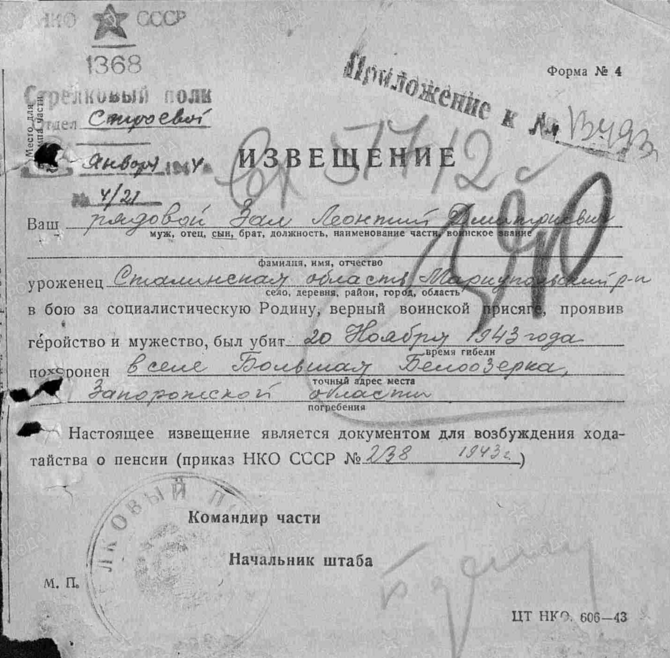 НКО СССР
1368
Форма № 4
Стрелковый полк
Приложение к № 13493
отдел Строевой
Место для штампа части
Января 1944
ИЗВЕЩЕНИЕ
№ 4/21
Вх 5712
Ваш рядовой Зам Леонтий Дмитриевич
муж, отец, сын, брат, должность, наименование части, воинское звание
фамилия, имя, отчество
уроженец Сталинская область Мариупольский р-н
село, деревня, район, город, область
в бою за социалистическую Родину, верный воинской присяге, проявив
геройство и мужество, был убит 20 Ноября 1943 года
время гибели
похоронен в селе Большая Белоозерка,
точный адрес места
Запорожской области
погребения
Настоящее извещение является документом для возбуждения хода-
тайства о пенсии (приказ НКО СССР № 238 1943 г)
ЛКОВЫЙ П
Командир части
Начальник штаба
М. П.
ЦТ НКО. 606—43